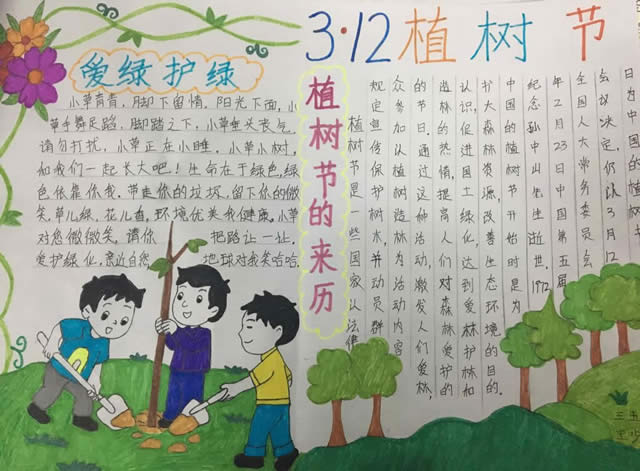 3·12植树节
爱绿护绿
小草青青,脚下留情,阳光下面,小
草手舞足蹈,脚踏之下,小草垂头丧气,
请勿打扰,小草正在小睡,小草小树,
和我们一起长大吧!生命在于绿色,绿
色依靠你我。带走你的垃圾,留下你的微
笑,草儿绿,花儿香,环境优美我健康。小草
对您微微笑,请你 把路让一让,
爱护绿化,亲近自然 地球对我笑哈哈。
植树节的来历
植树节是一些国家以法律
规定宣传保护树木,并动员群
众参加以植树造林为活动内容
的节日。通过这种活动,激发人们爱林,
造林的热情,提高人们对森林爱护的
认识,促进国土绿化,达到爱林护林和
扩大森林资源,改善生态环境的目的。
中国的植树节开始时是为
纪念孙中山先生逝世。1972
年2月23日中国第五届
全国人大常务委员会
会议决定,仍以3月12
日为中国
三年